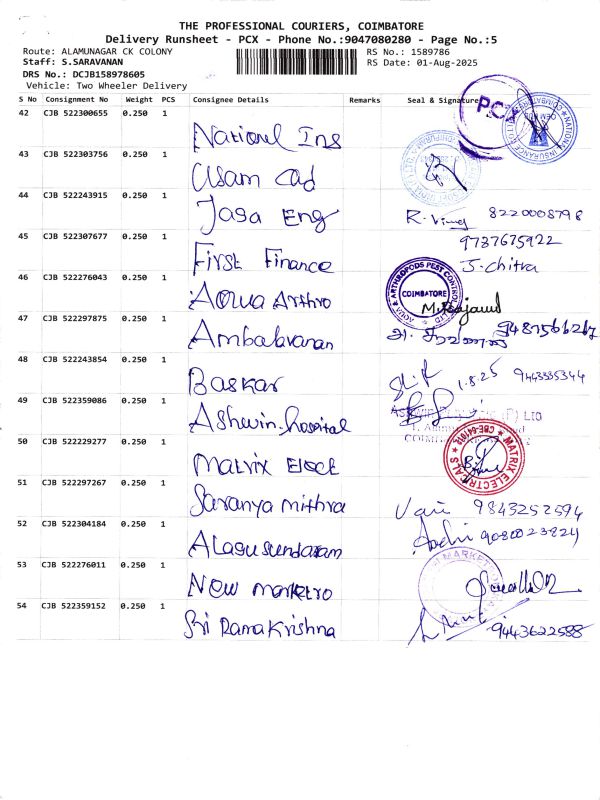 THE PROFESSIONAL COURIERS, COIMBATORE
Delivery Runsheet - PCX - Phone No.:9047080280 - Page No.:5
Route: ALAMUNAGAR CK COLONY RS No.: 1589786
Staff: S.SARAVANAN RS Date: 01-Aug-2025
DRS No.: DCJB158978605
Vehicle: Two Wheeler Delivery
S No Consignment No Weight PCS Consignee Details Remarks Seal & Signature
PCX
42 CJB 522300655 0.250 1 National Ins
43 CJB 522303756 0.250 1 Usam Cad
44 CJB 522243915 0.250 1 Jasa Eng 8220008798
45 CJB 522307677 0.250 1 First Finance 9737675922
J. Chitra
46 CJB 522276043 0.250 1 Aqua Arthro
AQUA ARTHROPODS PEST CONTROL
COIMBATORE
47 CJB 522297875 0.250 1 Ambalavanan
48 CJB 522243854 0.250 1 Baskar 1.8.25 9443335344
49 CJB 522359086 0.250 1 Ashwin hospital
50 CJB 522229277 0.250 1 Matrix Elect
MATRIX ELECTRICALS
51 CJB 522297267 0.250 1 Saranya mithra 9843252594
52 CJB 522304184 0.250 1 Alagusundaram
53 CJB 522276011 0.250 1 New marketro
54 CJB 522359152 0.250 1 Sri Rama Krishna 9443622588